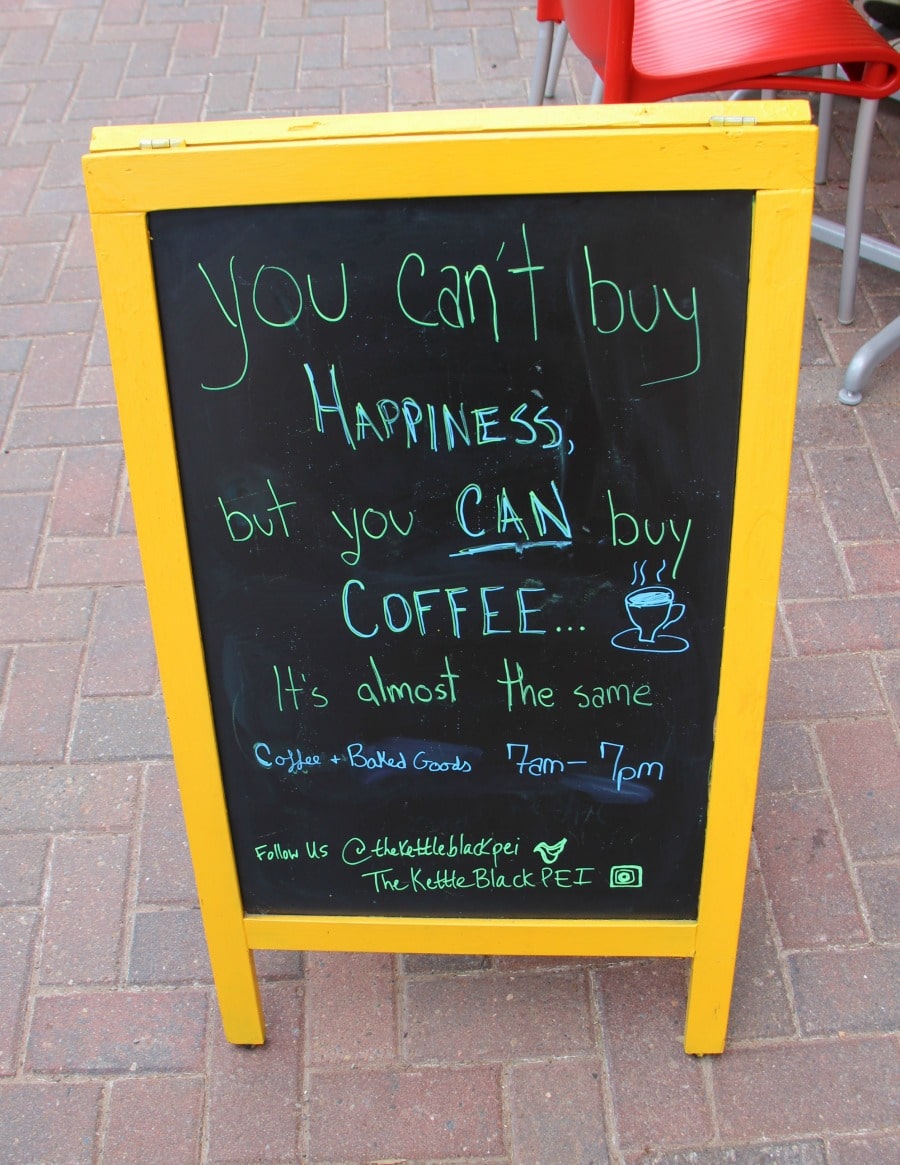 you can't buy
HAPPINESS,
but you CAN buy
COFFEE...
It's almost the same
Coffee + Baked Goods 7am - 7pm
Follow Us @thekettleblackpei
The Kettle Black PEI